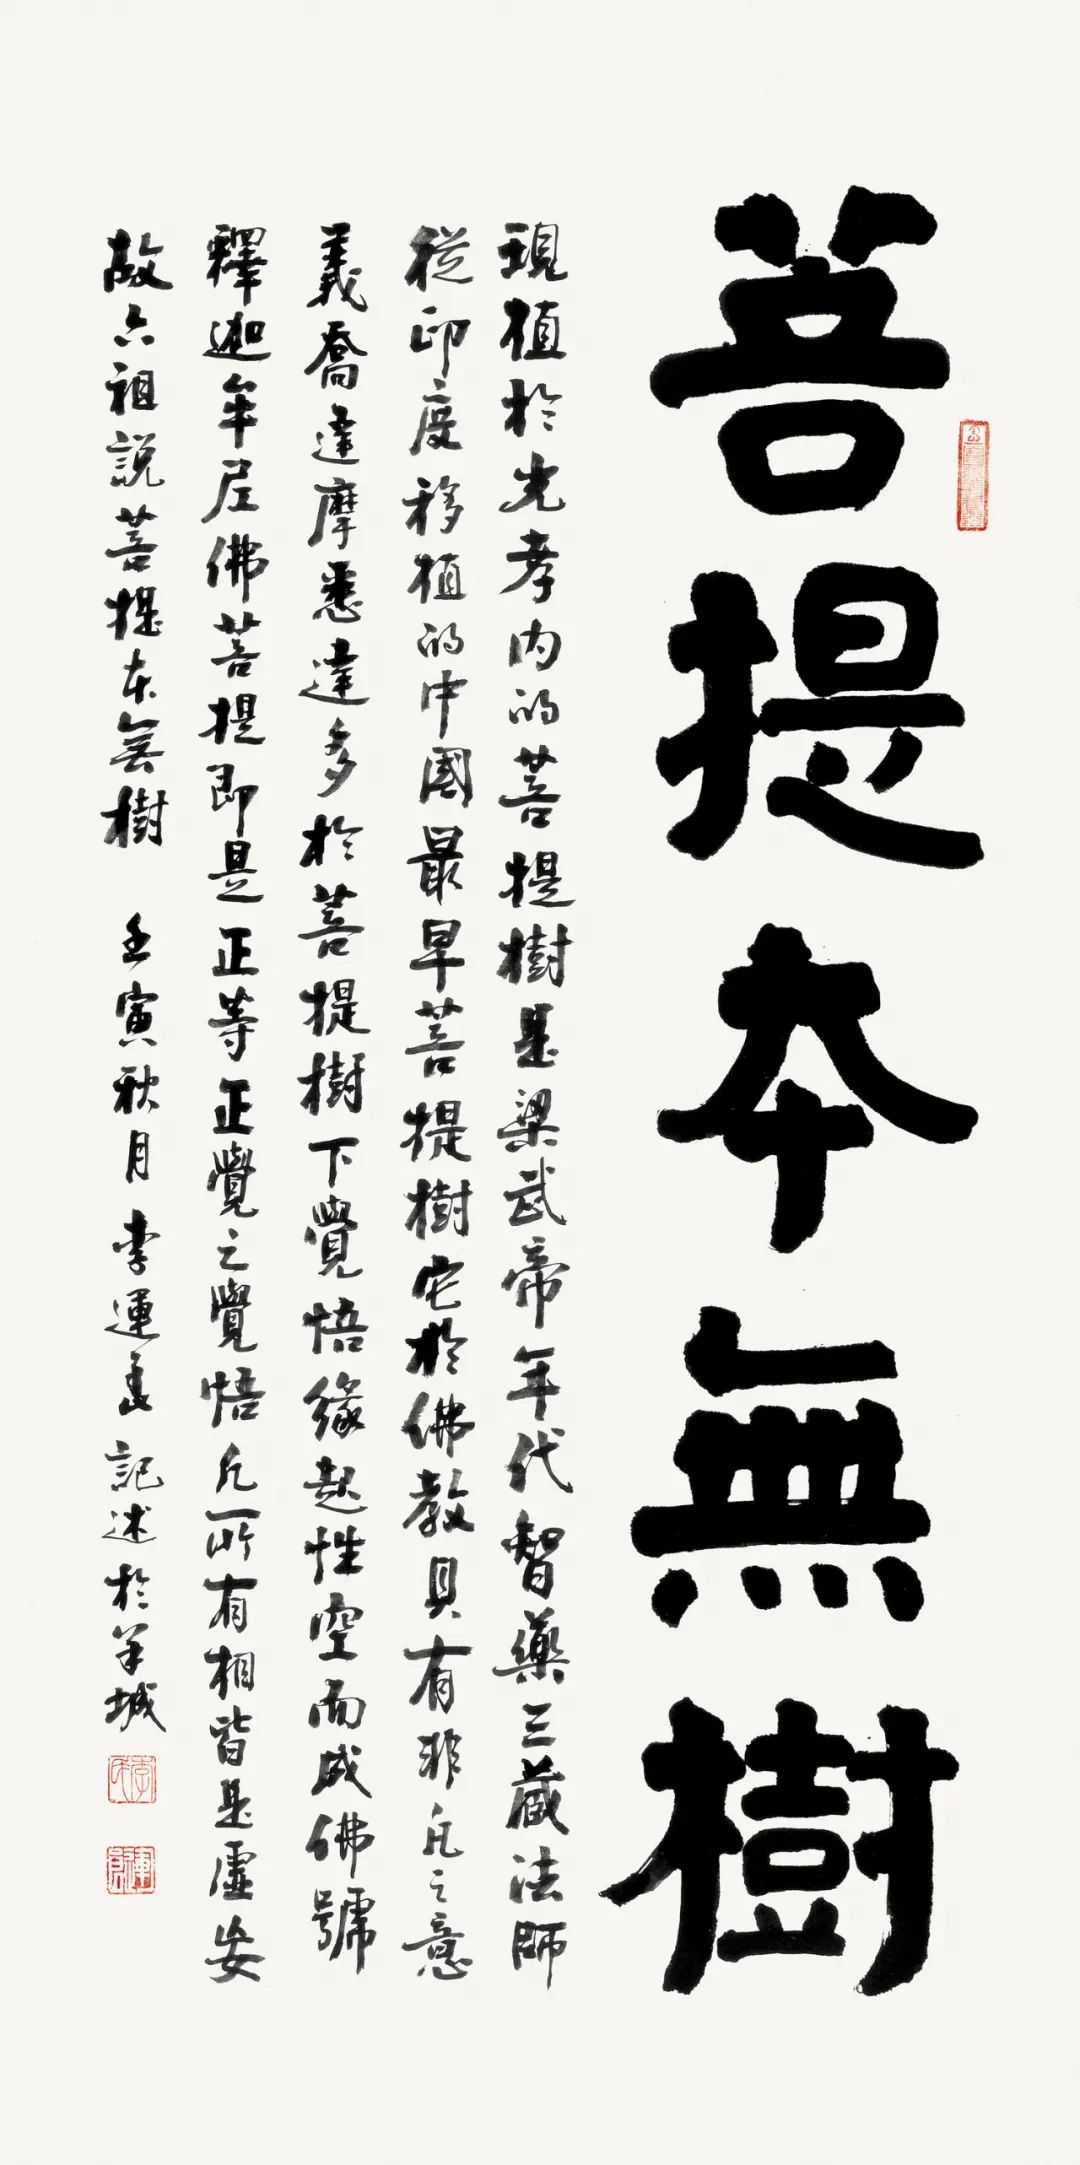 菩提本無樹
現植於光孝内的菩提樹是梁武帝年代智藥三藏法師
從印度移植的中國最早菩提樹它於佛教具有非凡之意
義喬達摩悉達多於菩提樹下覺悟緣起性空而成佛號
釋迦牟尼佛菩提即是正等正覺之覺悟凡所有相皆是虛妄
故六祖説菩提本無樹 壬寅秋月 李運 記述於羊城